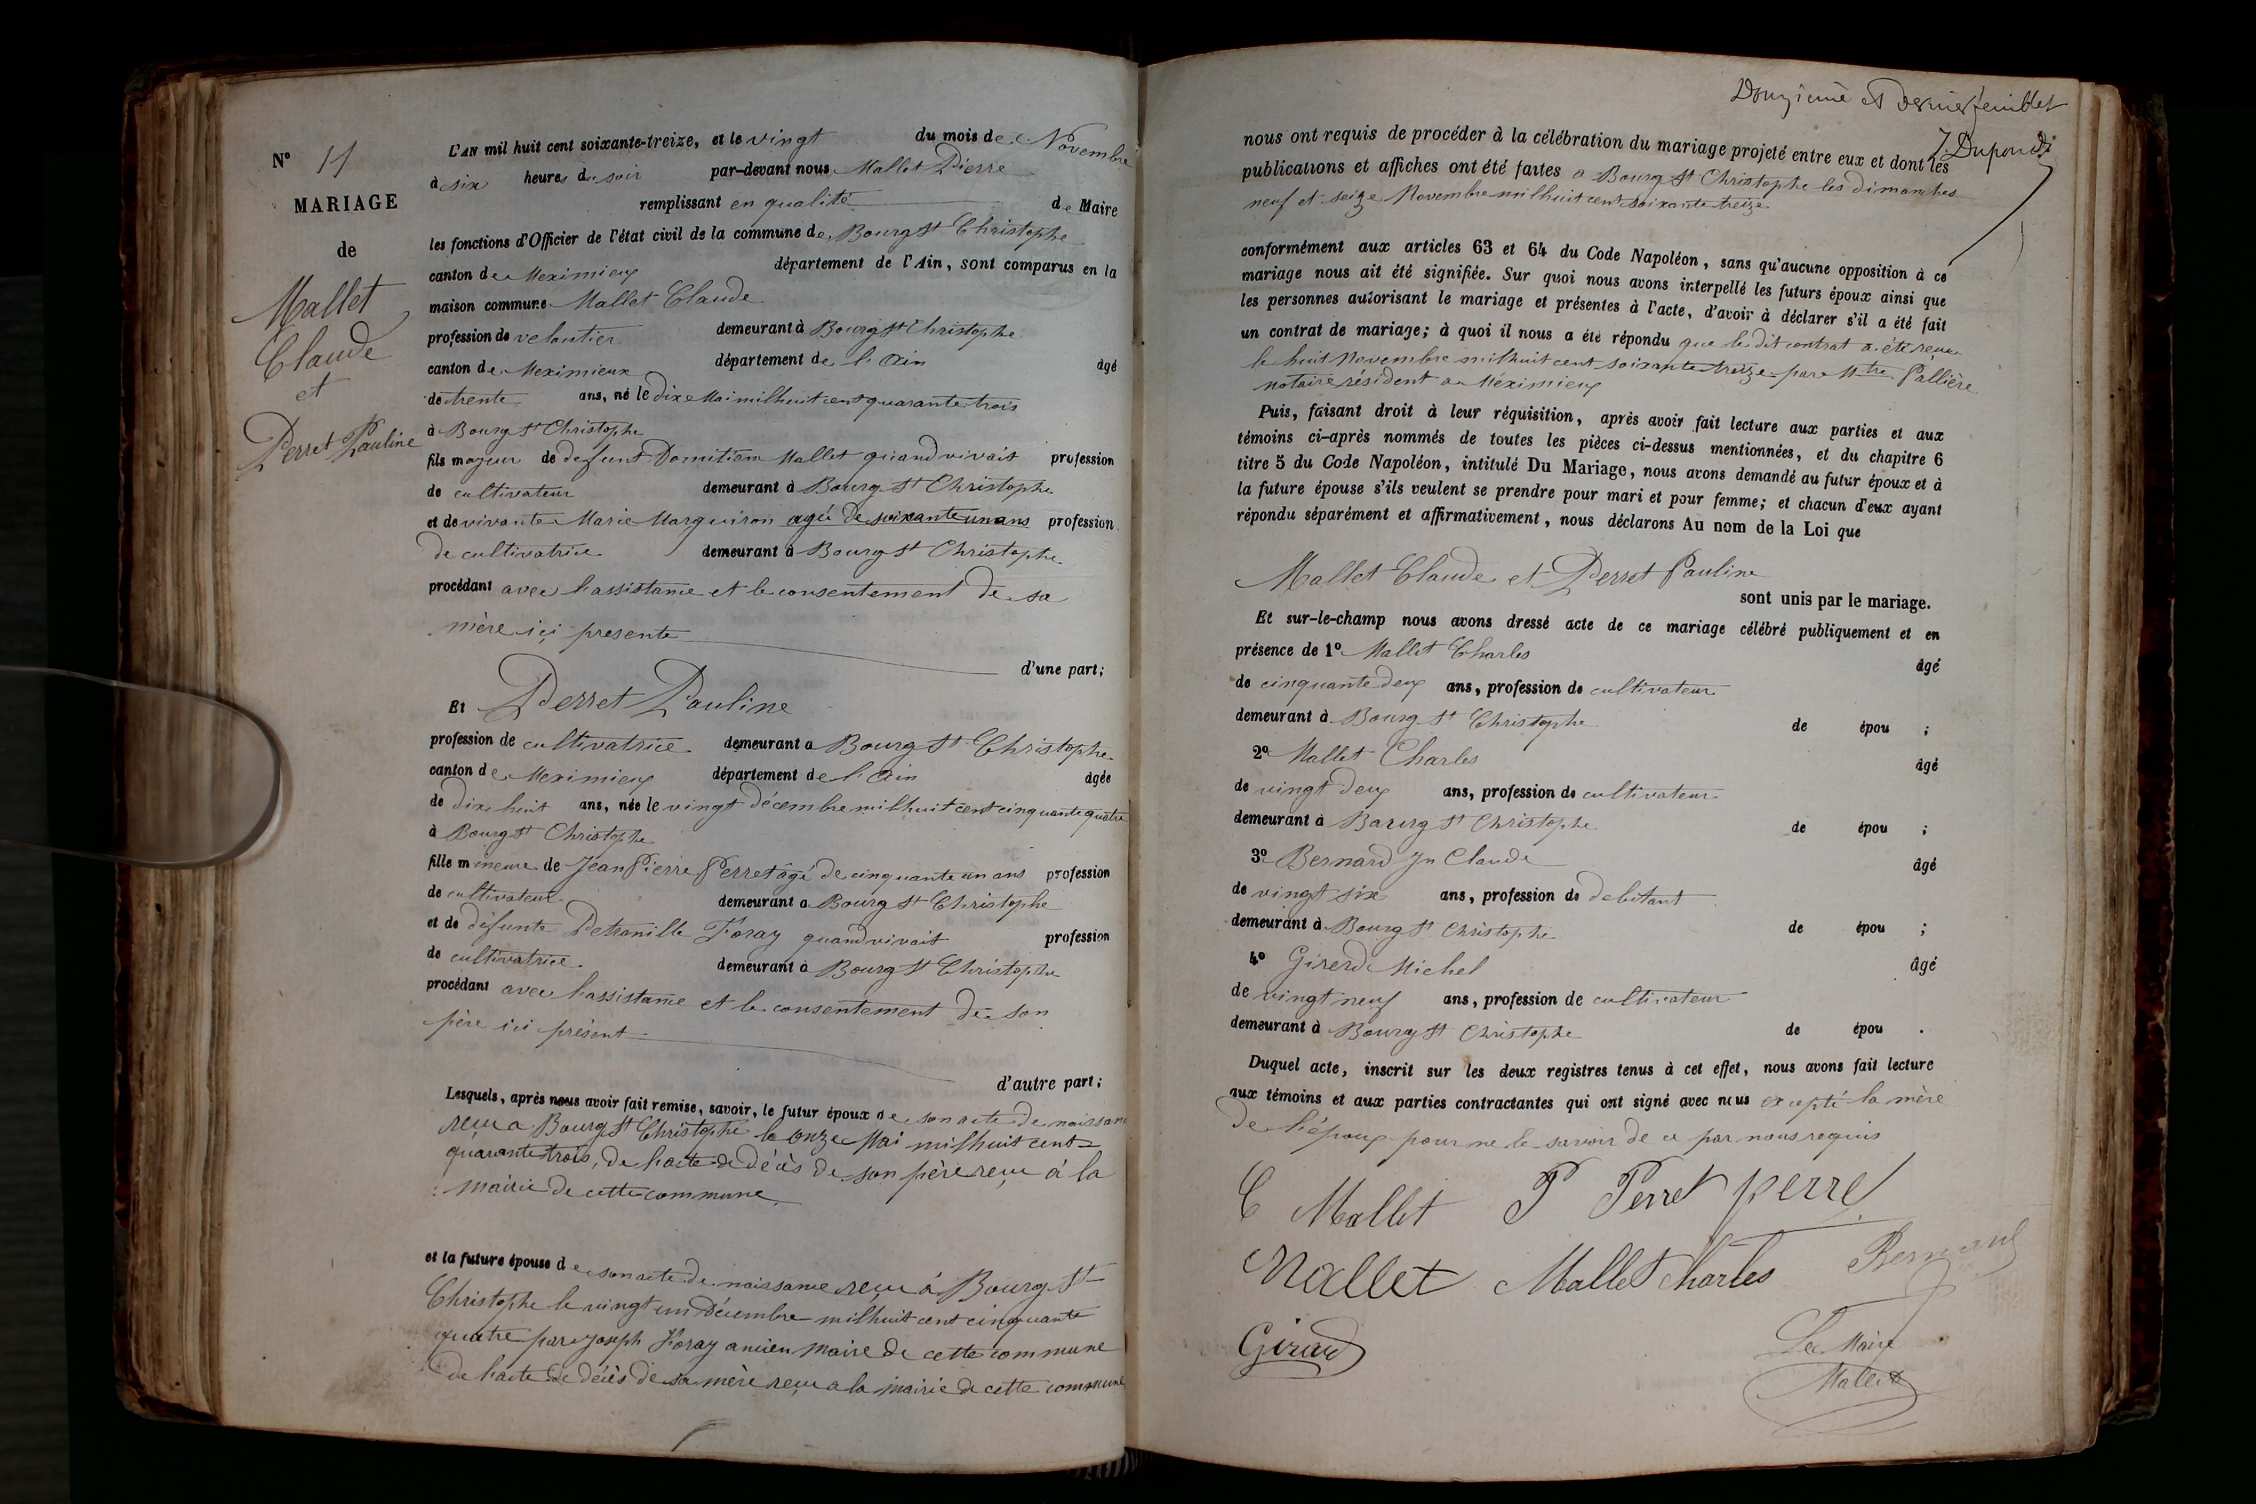 N° 11
MARIAGE
de
Mallet
Claude
et
Perret Pauline
L'AN mil huit cent soixante-treize, et le vingt du mois de Novembre
à six heures du soir par-devant nous Mallet Pierre
remplissant en qualité de Maire
les fonctions d'Officier de l'état civil de la commune de Bourg St Christophe
canton de Meximieux département de l'Ain, sont comparus en la
maison commune Mallet Claude
profession de veloutier demeurant à Bourg St Christophe
canton de Meximieux département de l'Ain âgé
de trente ans, né le dix Mai mil huit cent quarante trois
à Bourg St Christophe
fils majeur de defunt Domitien Mallet quand vivait profession
de cultivateur demeurant à Bourg St Christophe
et de vivante Marie Marguiron agée de soixante un ans profession
de cultivatrice demeurant à Bourg St Christophe
procédant avec l'assistance et le consentement de sa
mère ici presente
d'une part;
Et Perret Pauline
profession de cultivatrice demeurant à Bourg St Christophe
canton de Meximieux département de l'Ain âgée
de dix huit ans, née le vingt décembre mil huit cent cinquante quatre
à Bourg St Christophe
fille mineure de Jean Pierre Perret âgé de cinquante un ans profession
de cultivateur demeurant à Bourg St Christophe
et de défunte Petronille Foray quand vivait profession
de cultivatrice demeurant à Bourg St Christophe
procédant avec l'assistance et le consentement de son
père ici présent
d'autre part;
Lesquels, après nous avoir fait remise, savoir, le futur époux de son acte de naissance
reçu a Bourg St Christophe le onze Mai mil huit cent
quarante trois, de l'acte de décès de son père reçu à la
mairie de cette commune
et la future épouse de son acte de naissance reçu à Bourg St
Christophe le vingt un Décembre mil huit cent cinquante
quatre par Joseph Foray ancien Maire de cette commune
de l'acte de décès de sa mère reçu a la mairie de cette commune
Douzieme et dernier feuillet
J. Dupond
nous ont requis de procéder à la célébration du mariage projeté entre eux et dont les
publications et affiches ont été faites a Bourg St Christophe les dimanches
neuf et seize Novembre mil huit cent soixante treize
conformément aux articles 63 et 64 du Code Napoléon, sans qu'aucune opposition à ce
mariage nous ait été signifiée. Sur quoi nous avons interpellé les futurs époux ainsi que
les personnes autorisant le mariage et présentes à l'acte, d'avoir à déclarer s'il a été fait
un contrat de mariage; à quoi il nous a été répondu que le dit contrat a été reçu
le huit Novembre mil huit cent soixante treize par Mtre Pallière
notaire résident a Méximieux
Puis, faisant droit à leur réquisition, après avoir fait lecture aux parties et aux
témoins ci-après nommés de toutes les pièces ci-dessus mentionnées, et du chapitre 6
titre 5 du Code Napoléon, intitulé Du Mariage, nous avons demandé au futur époux et à
la future épouse s'ils veulent se prendre pour mari et pour femme; et chacun d'eux ayant
répondu séparément et affirmativement, nous déclarons Au nom de la Loi que
Mallet Claude et Perret Pauline
sont unis par le mariage.
Et sur-le-champ nous avons dressé acte de ce mariage célébré publiquement et en
présence de 1° Mallet Charles âgé
de cinquante deux ans, profession de cultivateur
demeurant à Bourg St Christophe de épou ;
2° Mallet Charles âgé
de vingt deux ans, profession de cultivateur
demeurant à Bourg St Christophe de épou ;
3° Bernard Jn Claude âgé
de vingt six ans, profession de debitant
demeurant à Bourg St Christophe de épou ;
4° Girerd Michel âgé
de vingt neuf ans, profession de cultivateur
demeurant à Bourg St Christophe de épou .
Duquel acte, inscrit sur les deux registres tenus à cet effet, nous avons fait lecture
aux témoins et aux parties contractantes qui ont signé avec nous excepté la mère
de l'époux pour ne le savoir de ce par nous requis
C Mallet P Perret perret
Mallet Mallet Charles Bernard
Girerd
Le Maire
Mallet